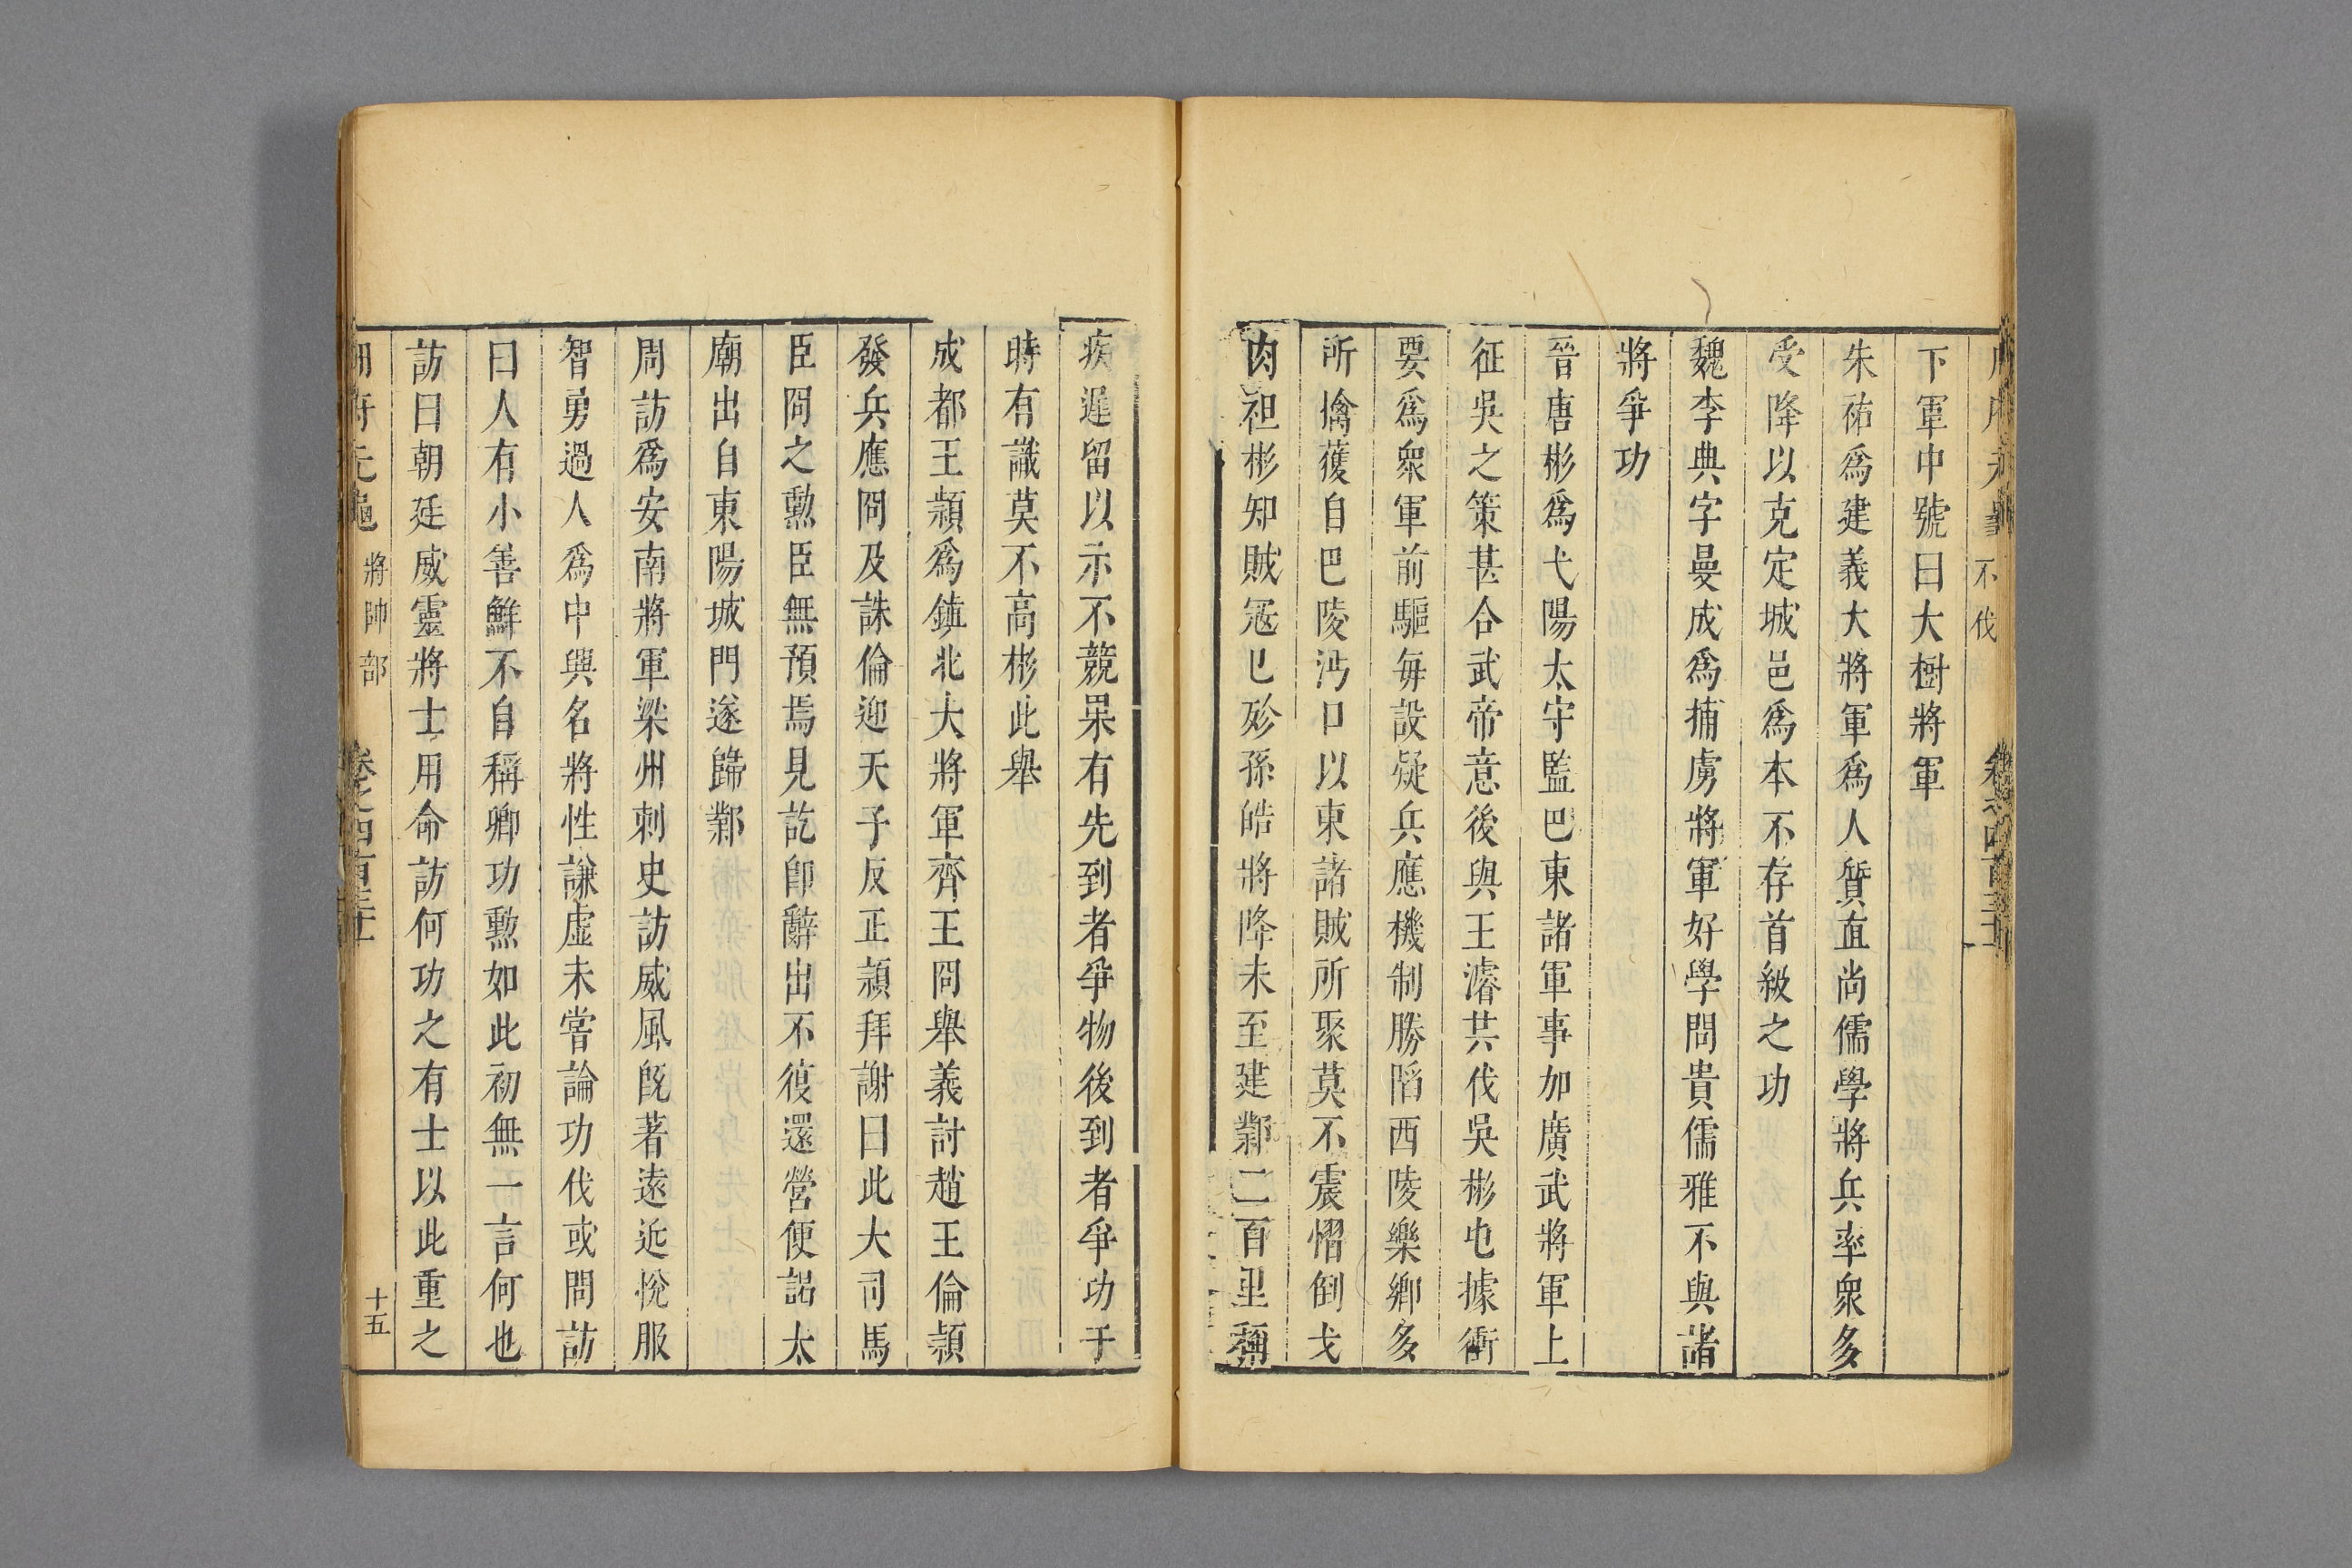 不伐
下軍中號曰大樹將軍
朱祐爲建義大將軍爲人質直尚儒學將兵率衆多
受降以克定城邑爲本不存首級之功
魏李典字曼成爲捕虜將軍好學問貴儒雅不與諸
將爭功
晉唐彬爲弋陽太守監巴東諸軍事加廣武將軍上
征吳之策甚合武帝意後與王濬共伐吳彬屯據衝
要爲衆軍前驅每設疑兵應機制勝陷西陵樂鄉多
所擒獲自巴陵沔口以東諸賊所聚莫不震慴倒戈
肉袒彬知賊冦巳殄孫皓將降未至建鄴二百里稱
疾遲留以示不競果有先到者爭物後到者爭功于
時有識莫不高彬此舉
成都王頴爲鎮北大將軍齊王冏舉義討趙王倫頴
發兵應冏及誅倫迎天子反正頴拜謝曰此大司馬
臣冏之勲臣無預焉見訖卽辭出不復還營便詣太
廟出自東陽城門遂歸鄴
周訪爲安南將軍梁州刺史訪威風旣著遠近悅服
智勇過人爲中興名將性謙虛未嘗論功伐或問訪
曰人有小善鮮不自稱卿功勲如此初無一言何也
訪曰朝廷威靈將士用命訪何功之有士以此重之
府元龜 將帥部 卷之四百三十一 十五